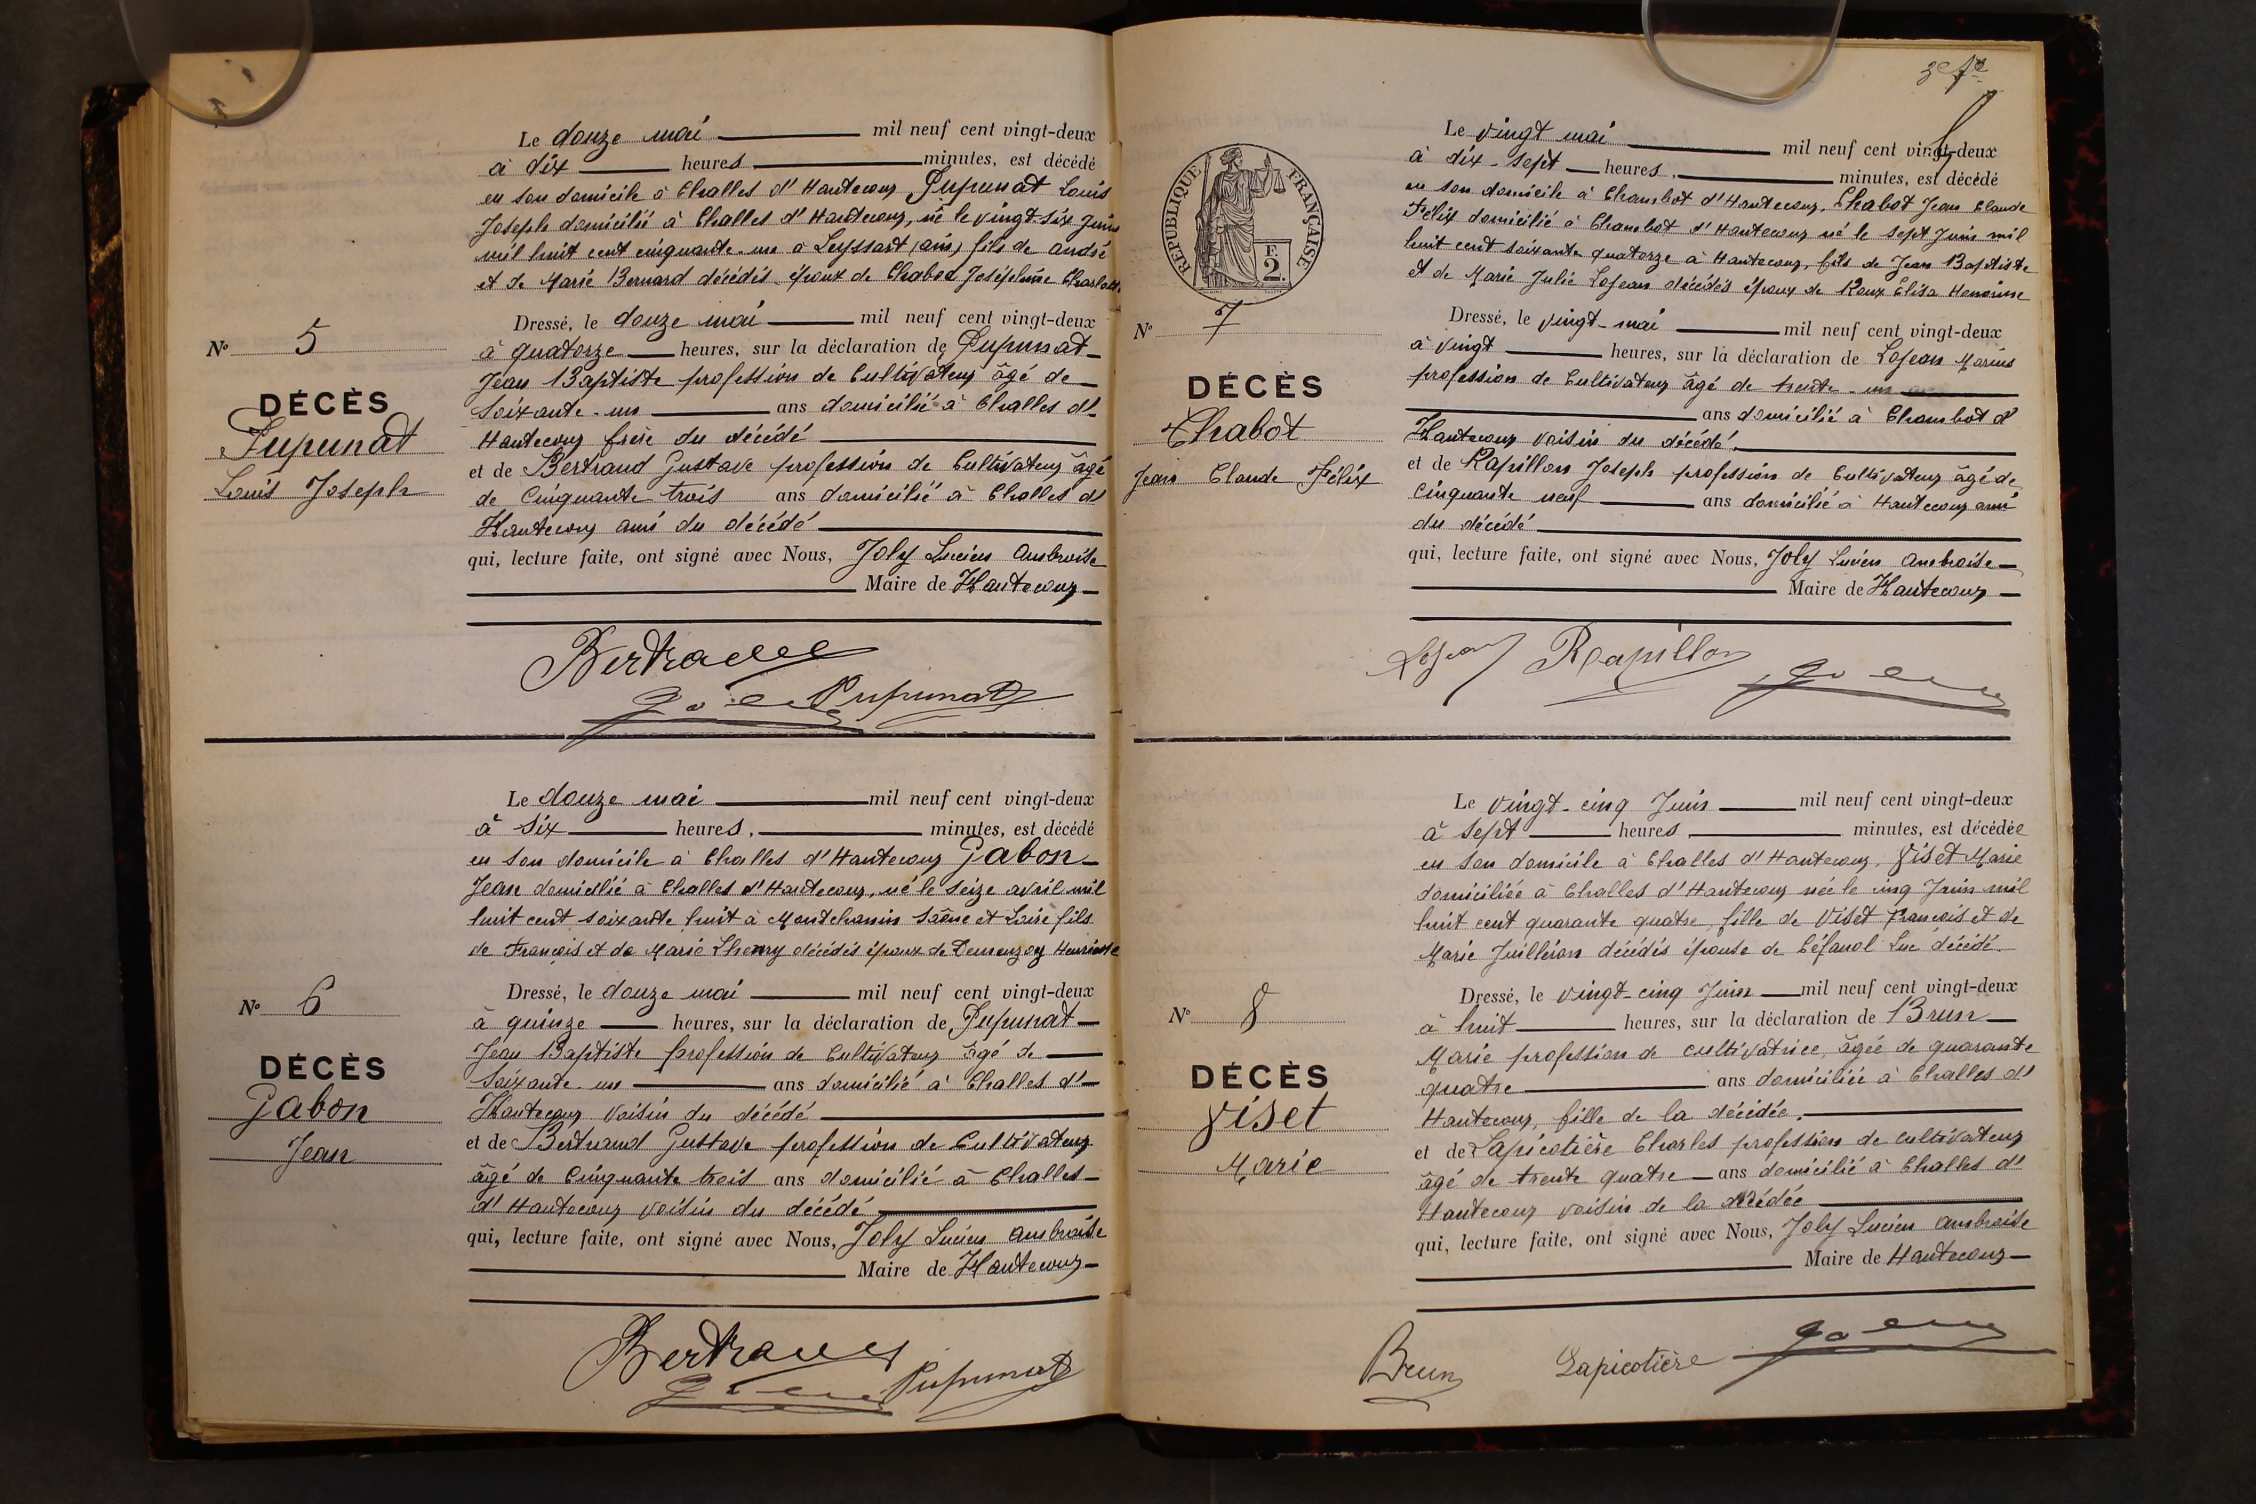 Le douze mai mil neuf cent vingt-deux
à dix heures minutes, est décédé
en son domicile à Challes d'Hautecour, Pupunat Louis
Joseph domicilié à Challes d'Hautecour, né le vingt-six Juin
mil huit cent cinquante-un à Leyssart (ain) fils de André
et de Marie Bernard décédés époux de Chabod Joséphine Charlotte
Dressé, le douze mai mil neuf cent vingt-deux
à quatorze heures, sur la déclaration de Pupunat
Jean Baptiste profession de Cultivateur âgé de
Soixante-un ans domicilié à Challes d'
Hautecour frère du décédé
et de Bertrand Gustave profession de Cultivateur âgé
de Cinquante trois ans domicilié à Challes d'
Hautecour ami du décédé
qui, lecture faite, ont signé avec Nous, Joly Lucien Ambroise
Maire de Hautecour
No 5
DÉCÈS
Pupunat
Louis Joseph
Bertrand
Pupunat
Le douze mai mil neuf cent vingt-deux
à Six heures, minutes, est décédé
en son domicile à Challes d'Hautecour Gabon
Jean domicilié à Challes d'Hautecour, né le seize avril mil
huit cent soixante huit à Montchanin Saône et Loire fils
de François et de Marie Lhenry décédés époux de Henriette
Dressé, le douze mai mil neuf cent vingt-deux
à quinze heures, sur la déclaration de Pupunat
Jean Baptiste profession de Cultivateur âgé de
Soixante-un ans domicilié à Challes d'
Hautecour voisin du décédé
et de Bertrand Gustave profession de Cultivateur
âgé de Cinquante trois ans domicilié à Challes
d'Hautecour voisin du décédé
qui, lecture faite, ont signé avec Nous, Joly Lucien Ambroise
Maire de Hautecour
No 6
DÉCÈS
Gabon
Jean
Bertrand
Pupunat
RÉPUBLIQUE FRANÇAISE
E
2
Le vingt mai mil neuf cent vingt-deux
à dix-sept heures, minutes, est décédé
en son domicile à Chambot d'Hautecour, Chabot Jean Claude
Félix domicilié à Chambot d'Hautecour né le sept Juin mil
huit cent soixante quatorze à Hautecour, fils de Jean Baptiste
et de Marie Julie Lojean décédés époux de Roux Elisa
Dressé, le vingt-mai mil neuf cent vingt-deux
à vingt heures, sur la déclaration de Lojean Marius
profession de Cultivateur âgé de trente-un
ans domicilié à Chambot d'
Hautecour voisin du décédé,
et de Rapillon Joseph profession de Cultivateur âgé de
cinquante neuf ans domicilié à Hautecour ami
du décédé
qui, lecture faite, ont signé avec Nous, Joly Lucien Ambroise
Maire de Hautecour
No 7
DÉCÈS
Chabot
Jean Claude Félix
Lojean Rapillon
Le vingt-cinq Juin mil neuf cent vingt-deux
à sept heures minutes, est décédée
en son domicile à Challes d'Hautecour, Viset Marie
domiciliée à Challes d'Hautecour née le cinq Juin mil
huit cent quarante quatre, fille de Viset François et de
Marie Juilléron décédés épouse de Luc décédé
Dressé, le vingt-cinq Juin mil neuf cent vingt-deux
à huit heures, sur la déclaration de Brun
Marie profession de cultivatrice, âgée de quarante
quatre ans domiciliée à Challes d'
Hautecour, fille de la décédée,
et de Lapicotière Charles profession de cultivateur
âgé de trente quatre ans domicilié à Challes d'
Hautecour voisin de la décédée
qui, lecture faite, ont signé avec Nous, Joly Lucien Ambroise
Maire de Hautecour
No 8
DÉCÈS
Viset
Marie
Brun Lapicotière